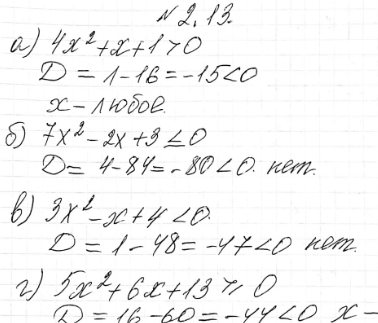 № 2.13.
а) 4x²+x+1>0
D = 1-16=-15<0
x - любое.
б) 7x²-2x+3≤0
D= 4-84=-80<0. нет.
в) 3x²-x+4<0.
D = 1-48=-47<0 нет.
г) 5x²+6x+13≥0
D = 16-60=-44<0 x-